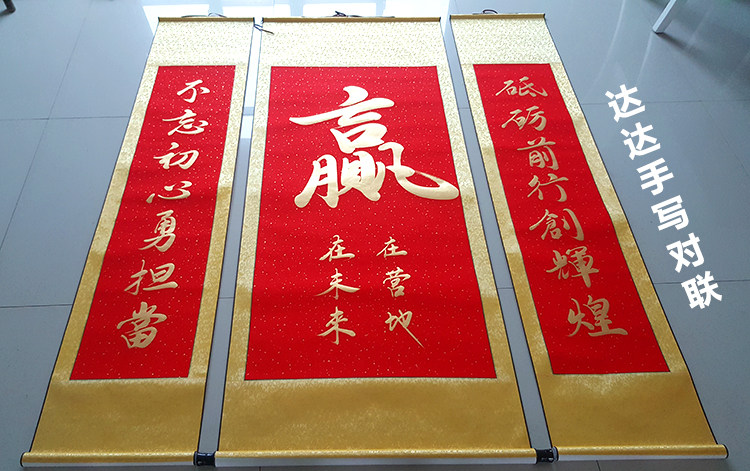 不忘初心勇担當
赢
在营地
在未来
砥砺前行創輝煌
达达手写对联